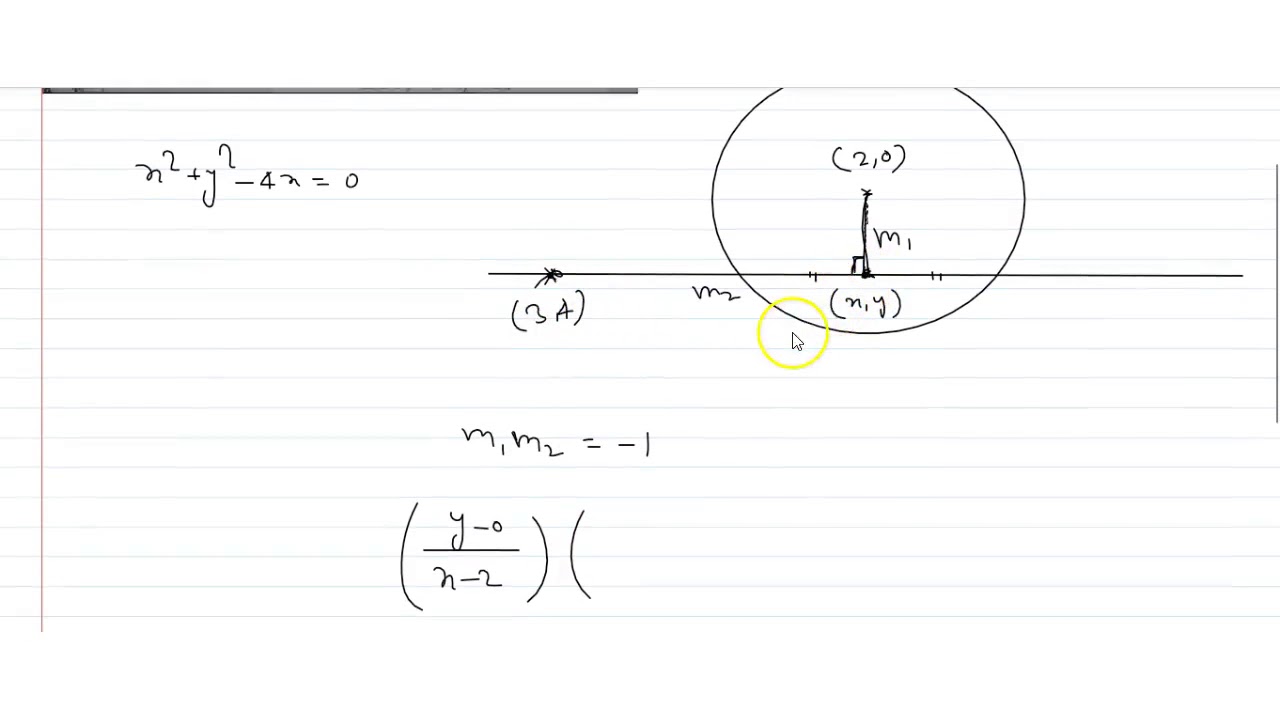 x² + y² - 4x = 0
(2,0)
m₁
m₂
(x,y)
(3A)
m₁m₂ = -1
(y-0/x-2)(